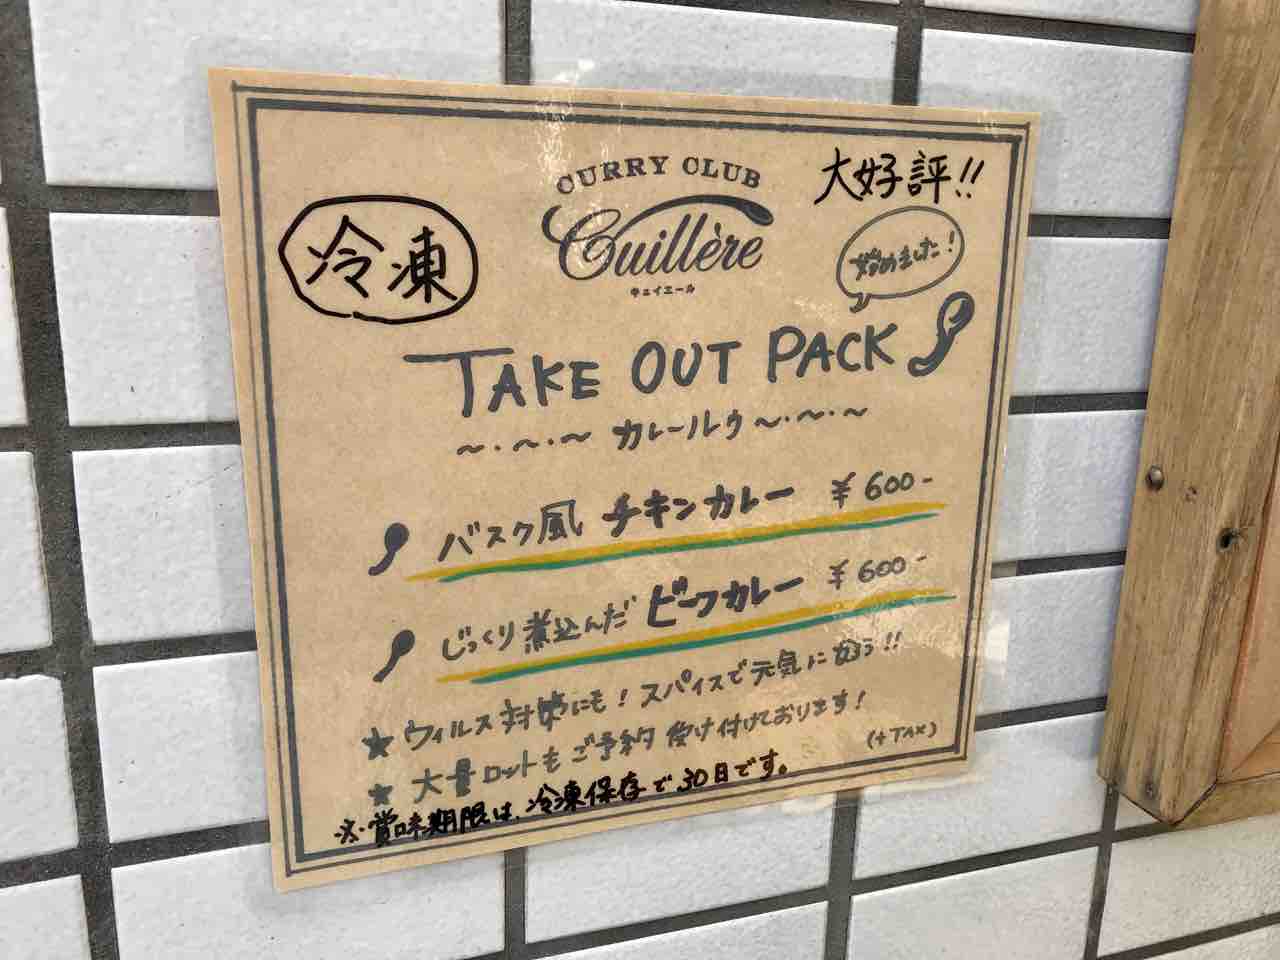 CURRY CLUB
Cuillère
キュイエール
大好評!!
冷凍
始めました!
TAKE OUT PACK
～・～・～ カレールゥ ～・～・～
バスク風 チキンカレー ¥600-
じっくり煮込んだ ビーフカレー ¥600-
★ ウィルス対策にも! スパイスで元気に好う!!
★ 大量ロットもご予約受け付けております!
(+TAX)
※賞味期限は、冷凍保存で30日です。